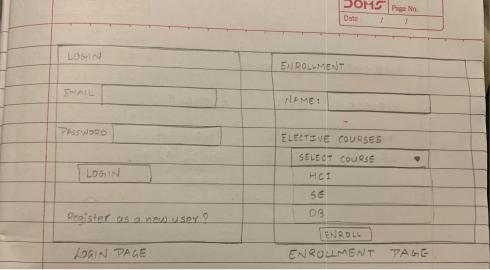 DOMS
Page No.
Date / /
LOGIN
EMAIL
PASSWORD
LOGIN
Register as a new user?
LOGIN PAGE
ENROLLMENT
NAME:
ELECTIVE COURSES
SELECT COURSE
HCI
SE
DB
ENROLL
ENROLLMENT PAGE.